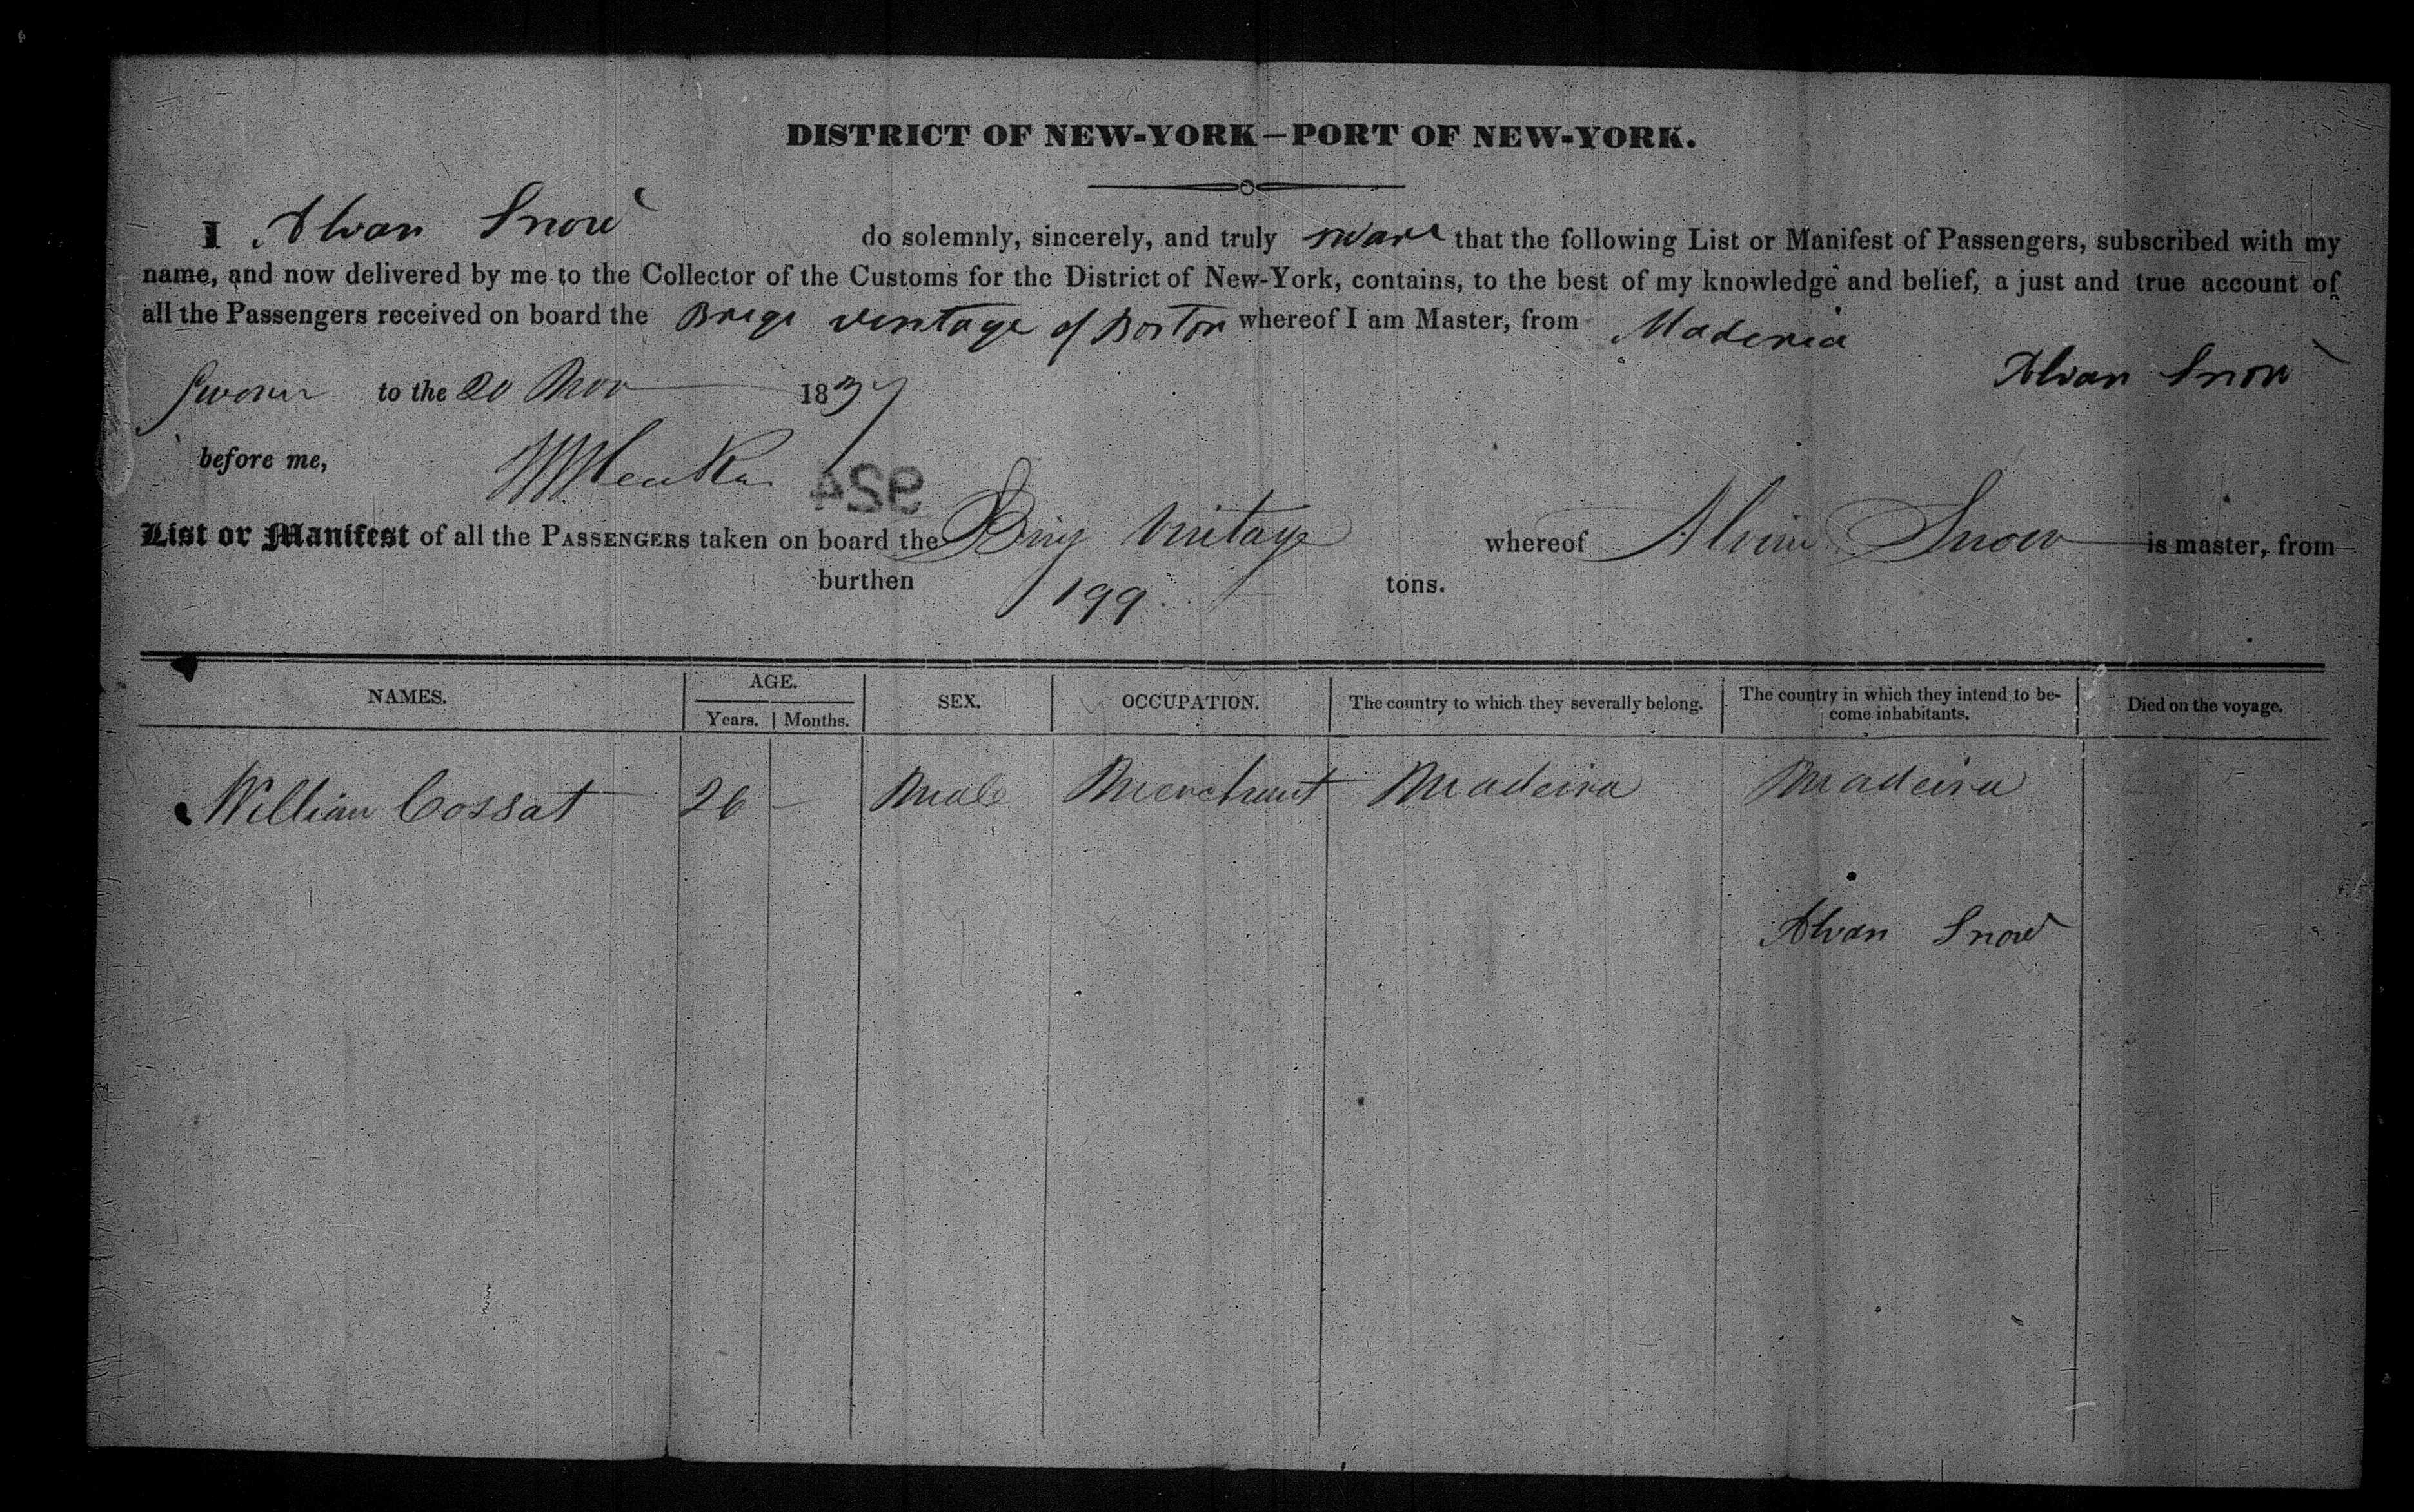 DISTRICT OF NEW-YORK—PORT OF NEW-YORK.
I Alvan Snow do solemnly, sincerely, and truly swore that the following List or Manifest of Passengers, subscribed with my
name, and now delivered by me to the Collector of the Customs for the District of New-York, contains, to the best of my knowledge and belief, a just and true account of
all the Passengers received on board the Brige Vintage of Boston whereof I am Master, from Maderia
Alvan Snow
Sworn to the 20 Nov 1837
before me,
924
List or Manifest of all the PASSENGERS taken on board the Brig Vintage whereof Alvin Snow is master, from
burthen 199 tons.
NAMES. AGE. SEX. OCCUPATION. The country to which they severally belong. The country in which they intend to be- Died on the voyage.
Years. Months. come inhabitants.
William Cossat 26 — Male Merchant Madeira Madeira
Alvan Snow